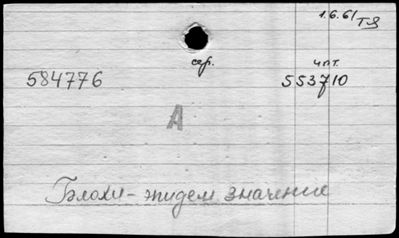 1.6.61 ТЯ
сер. чит.
584776 553710
А
Блохи - эпидем значение